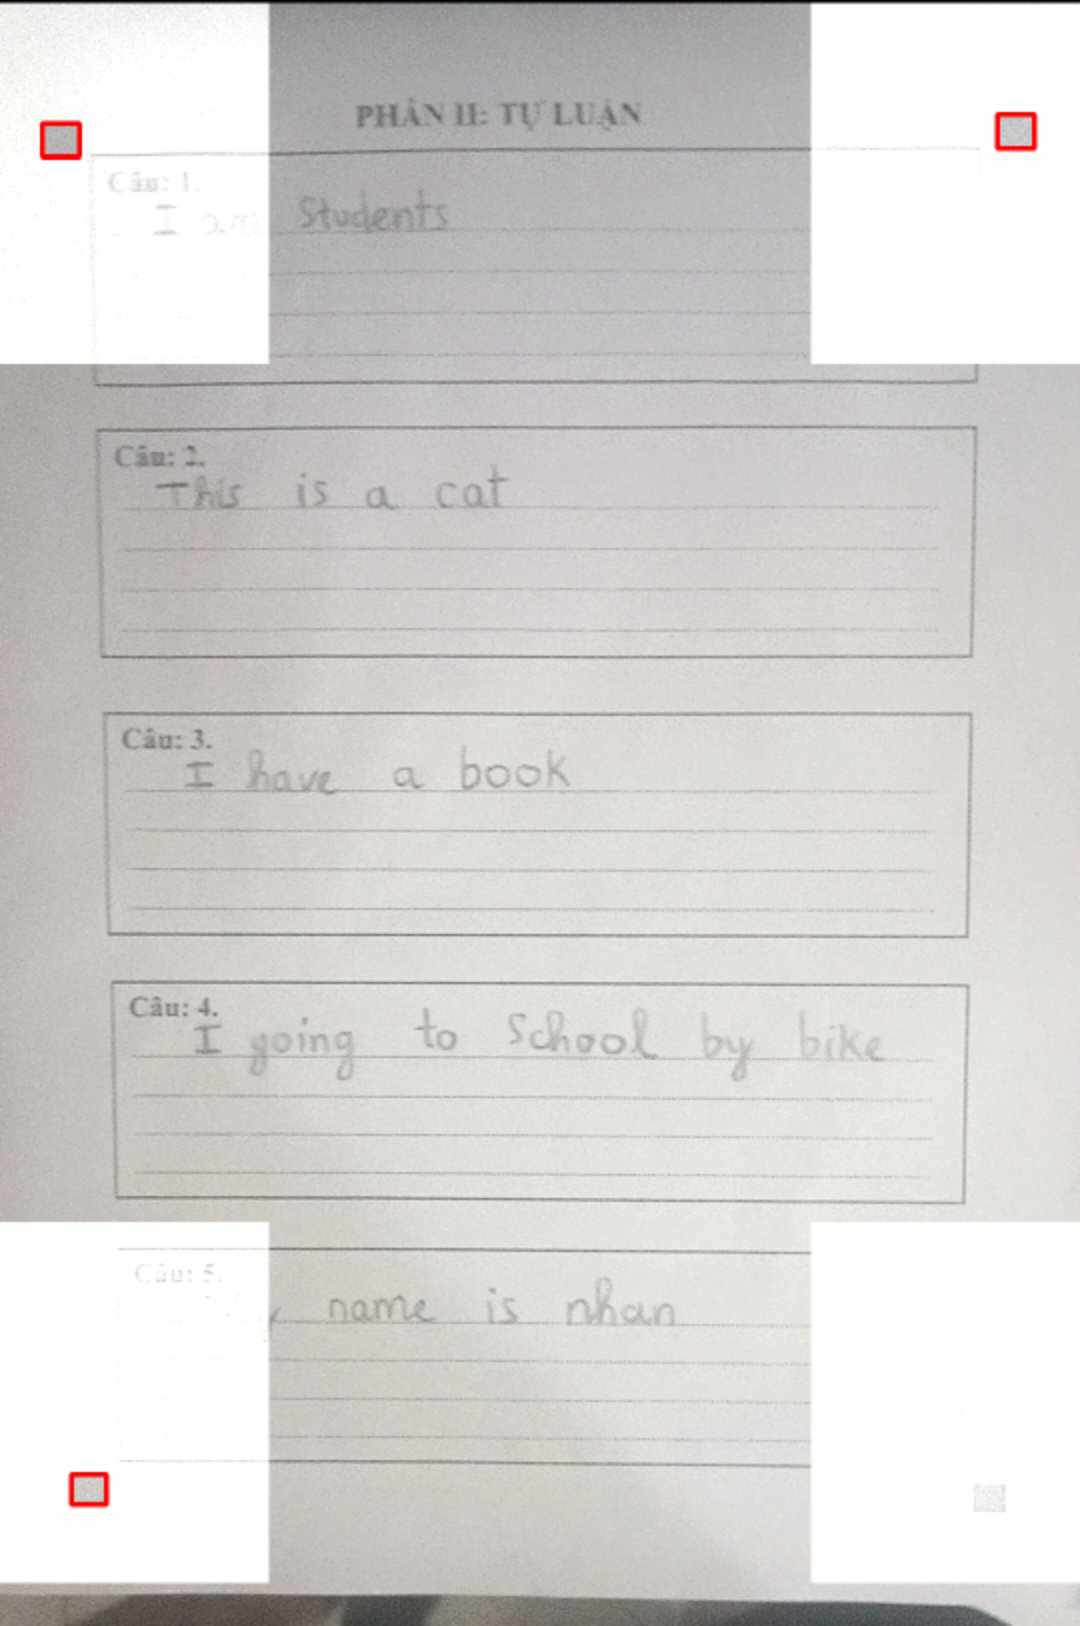 PHẦN II: TỰ LUẬN
Câu: 1.
I am Students
Câu: 2.
This is a cat
Câu: 3.
I have a book
Câu: 4.
I going to school by bike
Câu: 5.
name is nhan